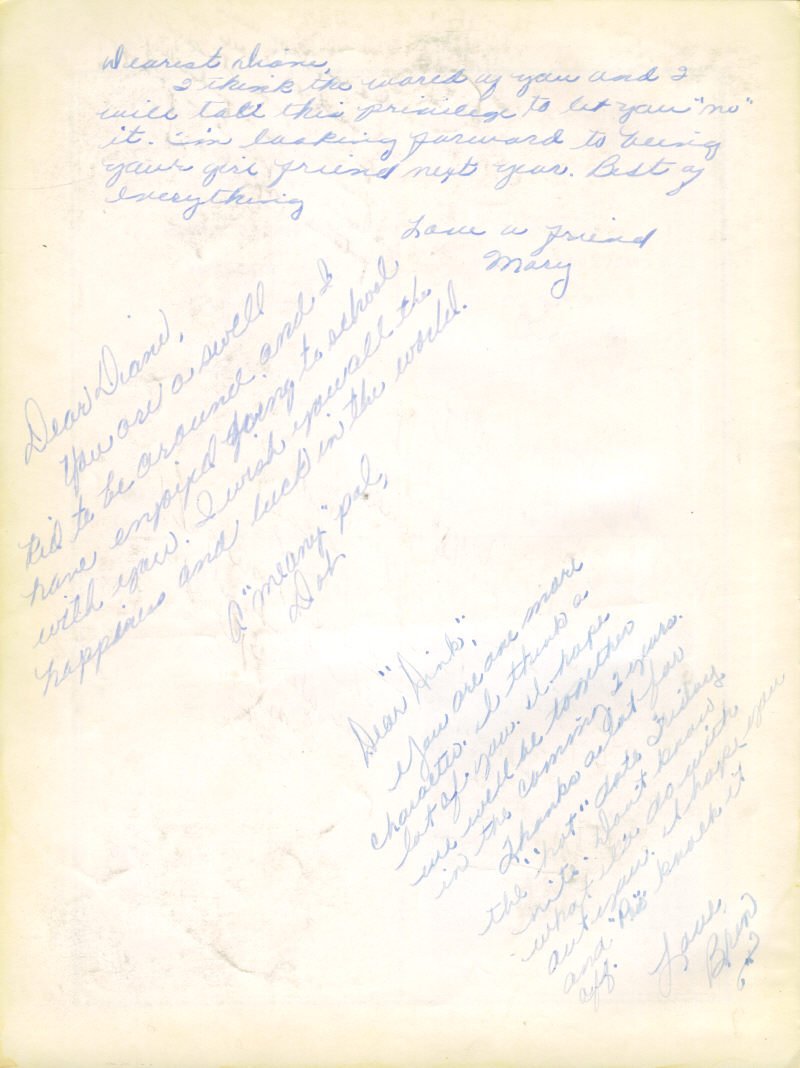 Dearest Diane,
I think the world of you and I
will take this privilege to let you "no"
it. I'm looking forward to being
your girl friend next year. Best of
everything
Love a friend
Mary
Dear Diane,
You are a swell
kid to be around and I
have enjoyed going to school
with you. I wish you all the
happiness and luck in the world.
A "meany" pal,
Dot
Dear "Dink",
You are one more
character. I think a
lot of you. I hope
we will be together
in the comming 2 years.
Thanks a lot for
the "hot" date Friday
nite. Don't know
what I'd do with
out you. I hope you
and knock it
off.
Love,